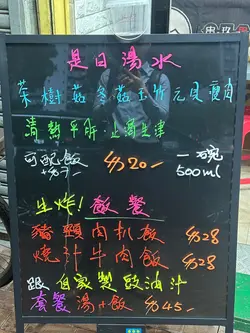 是日湯水
茶樹菇冬菇玉竹元貝瘦肉
清熱平肝·止渴生津
可配飯 $20— 一碗
500ml
生炒! 飯餐
豬頸肉扒飯 $28
燒汁牛肉飯 $28
跟自家製豉油汁
套餐湯+飯 $45—